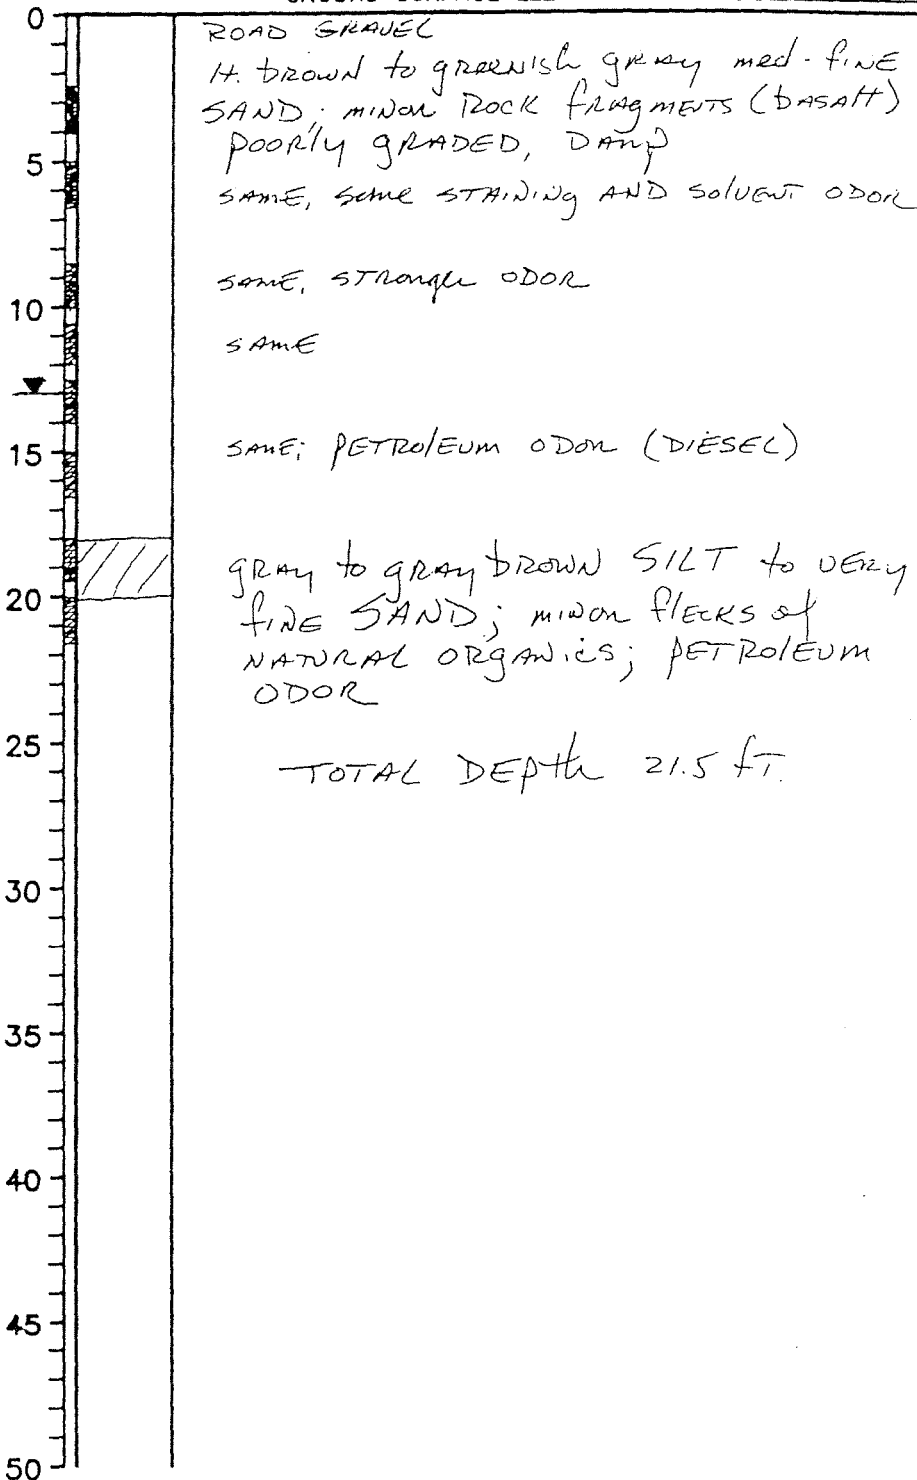 0
ROAD GRAVEL
lt. brown to greenish gray med-fine
SAND; minor Rock fragments (basalt)
poorly graded, Damp
5
SAME, some STAINING AND SOLVENT ODOR
SAME, STRONGER ODOR
10
SAME
15
SAME; PETROLEUM ODOR (DIESEL)
GRAY to GRAY BROWN SILT to VERY
20
FINE SAND; minor flecks of
NATURAL ORGANICS; PETROLEUM
ODOR
25
TOTAL DEPTH 21.5 FT.
30
35
40
45
50